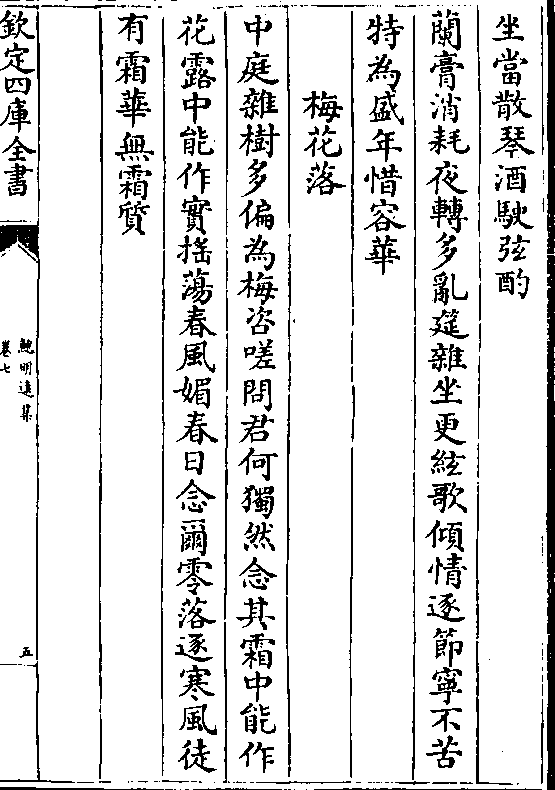 坐當散琴酒駛弦酌
蘭膏消耗夜轉多亂筵雜坐更絃歌傾情逐節寧不苦
特為盛年惜容華
梅花落
中庭雜樹多偏為梅咨嗟問君何獨然念其霜中能作
花露中能作實揺蕩春風媚春日念爾零落逐寒風徒
有霜華無霜質
欽定四庫全書
鮑明逺集
卷七
五